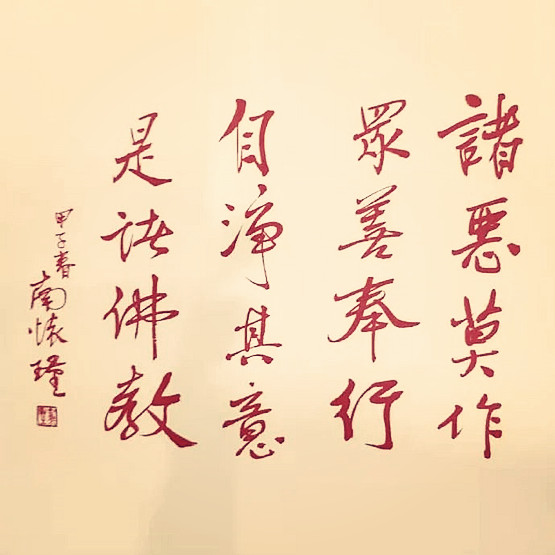 諸惡莫作
眾善奉行
自淨其意
是諸佛教
甲子春
南懷瑾